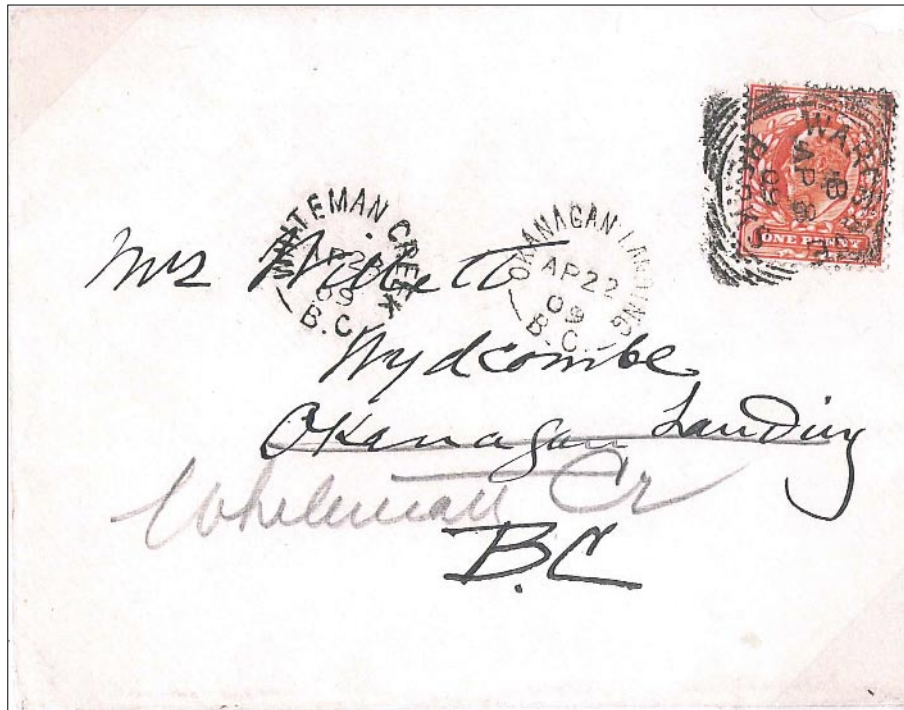 AP 8
09
ONE PENNY
WHITEMAN CREEK
AP 23
09
B.C.
OKANAGAN LANDING
AP 22
09
B.C.
Mrs
Wydcombe
Okanagan Landing
Whiteman Cr
B.C